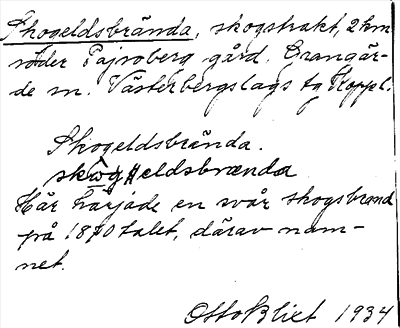 Skogeldsbrända, skogstrakt, 2 km
söder Pajsoberg gård. Grangär-
de sn. Västerbergslags tg Koppl.
Skogeldsbrända.
skògeldsbrænda
Här härjade en svår skogsbrand
på 1870 talet, därav nam-
net.
Otto Blixt 1934